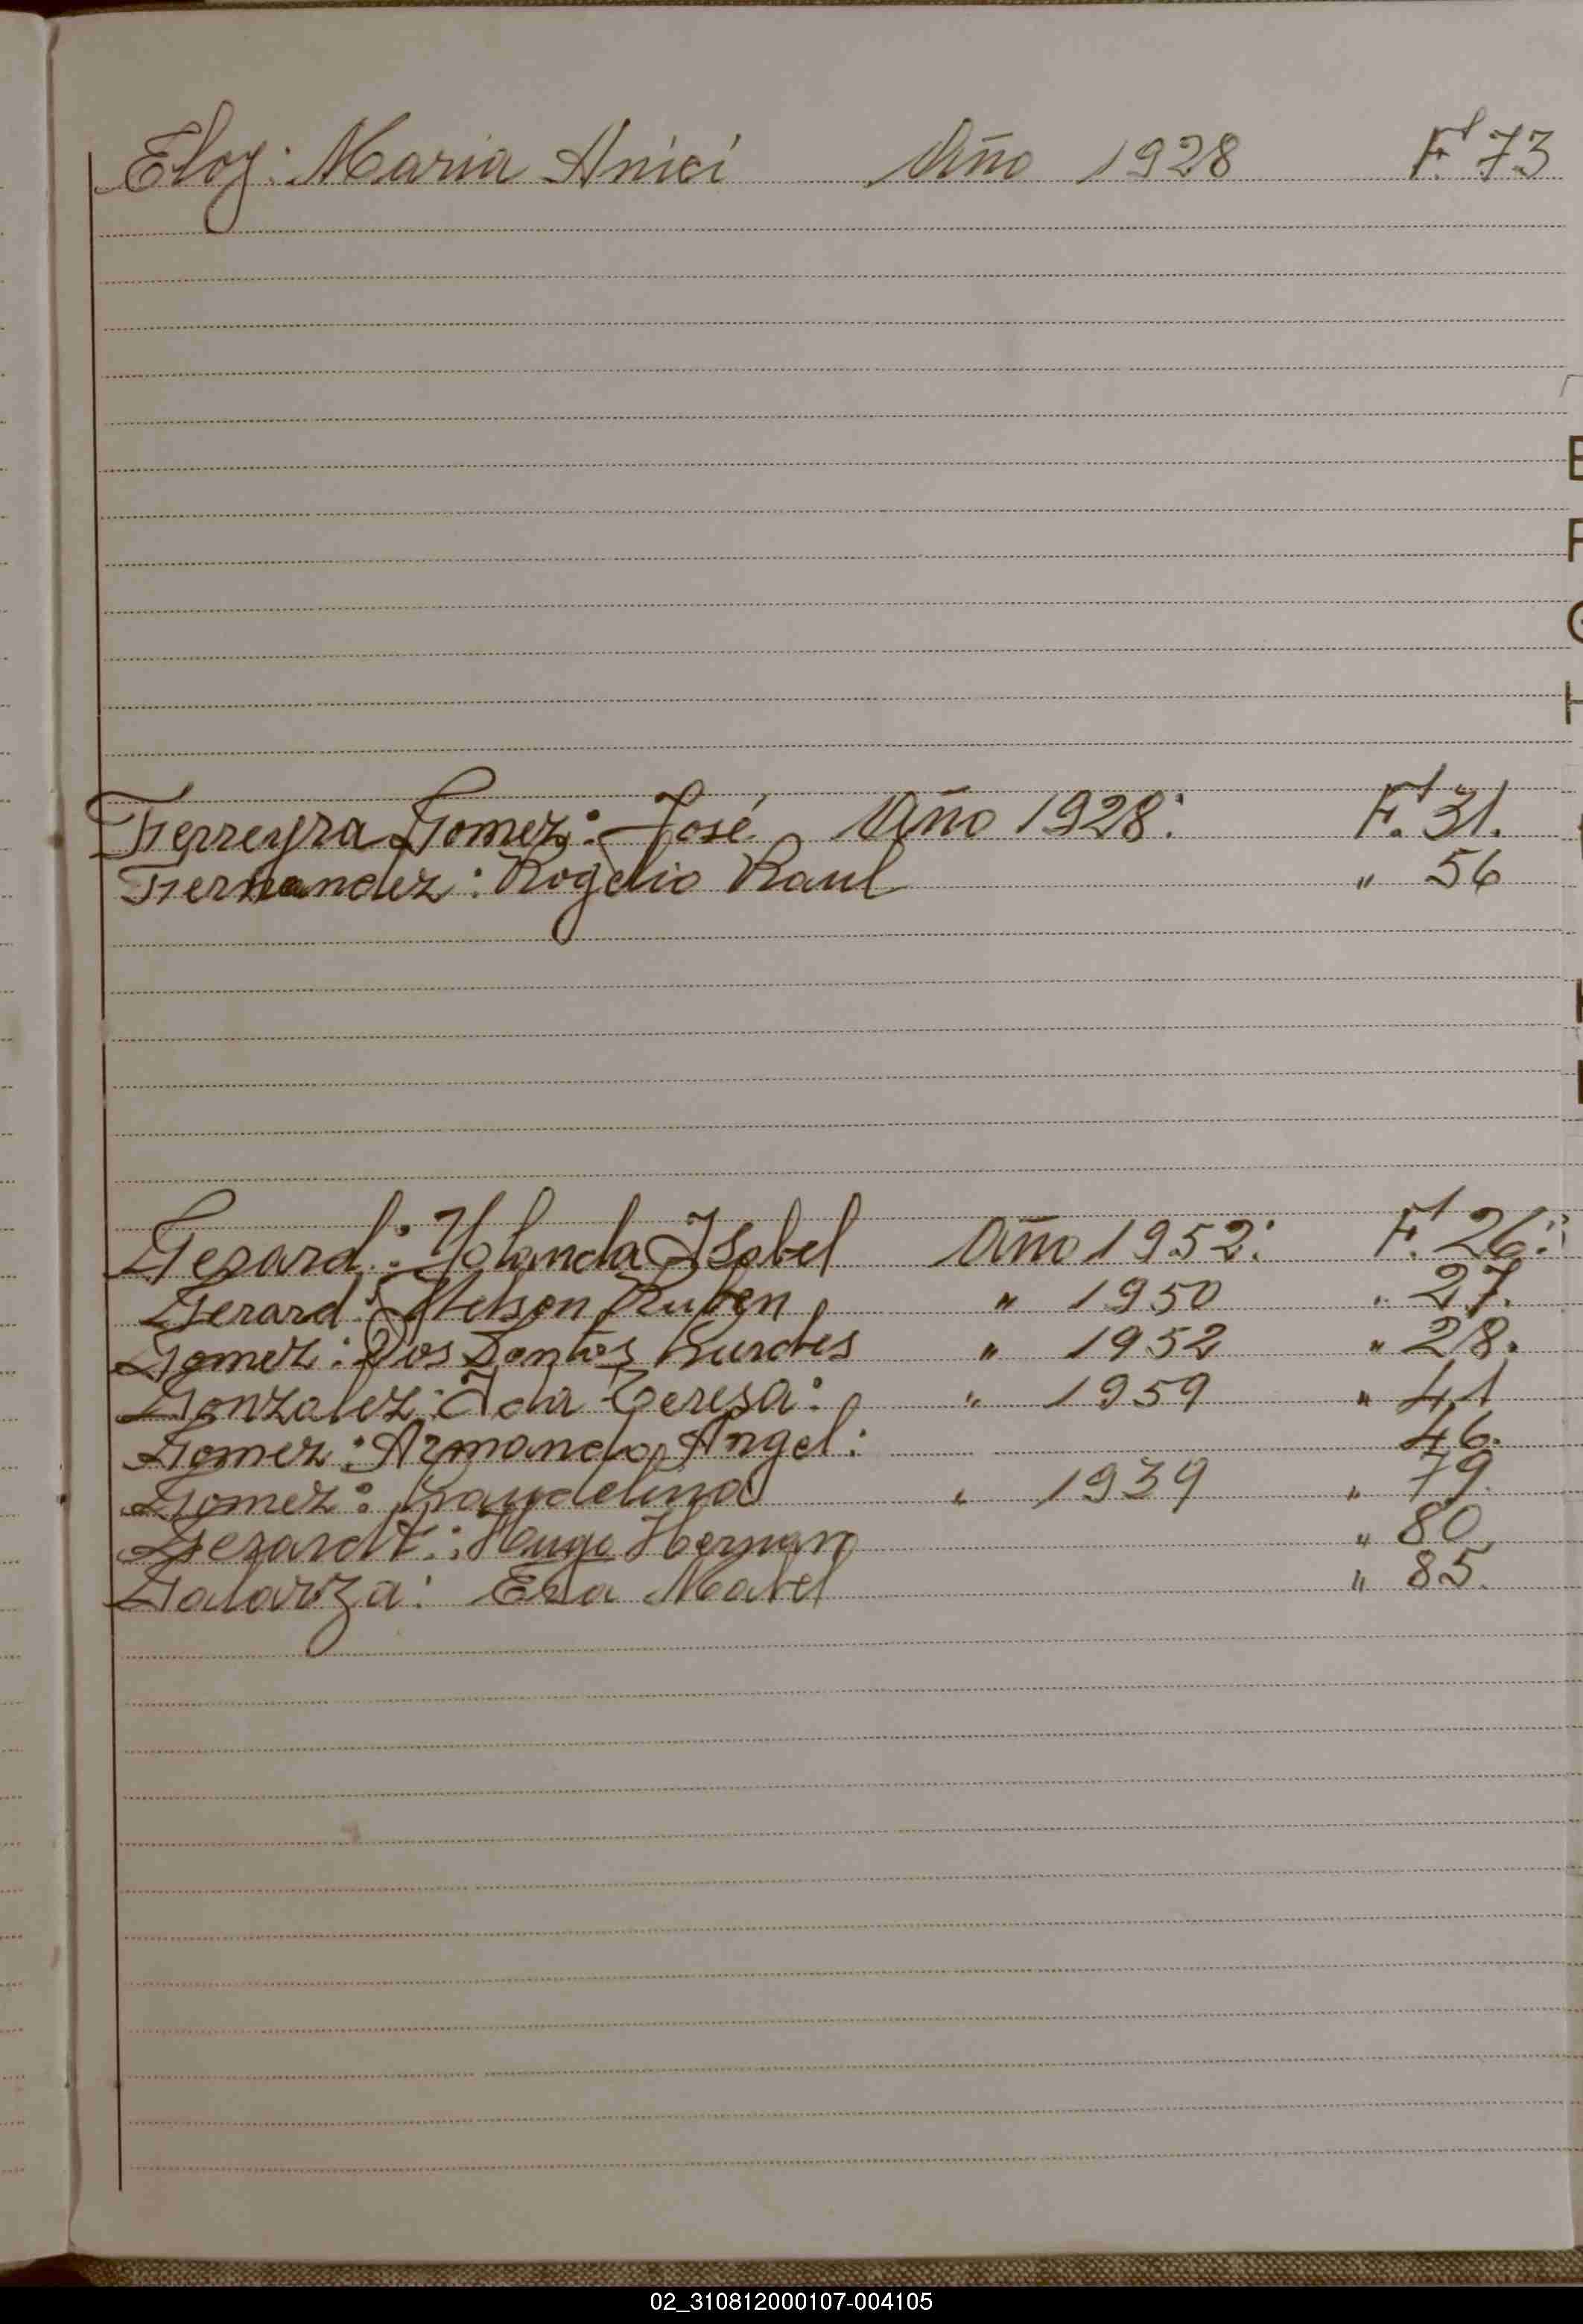 Eloy: Maria Anici Año 1928 Fl 73
E
F
G
H
Ferreyra Gomez: José Año 1928: Fl. 31.
Fernandez: Rogelio Raul " 56
Gerard: Yolanda Isabel Año 1952: Fl. 26:
Gerard: Nelson Ruben " 1950 " 27.
Gomez: Dos Santos Lurdes " 1952 " 28.
Gonzalez: Ida Teresa: " 1959 " 41
Gomez: Armando Angel: 46.
Gomez: Laudelina " 1939 " 79.
Gerardt: Hugo Hernan " 80
Galarza: Elsa Mabel " 85.
02_310812000107-004105